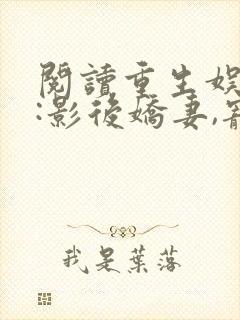 閱讀重生娛
:影後嬌妻,
我是葉落